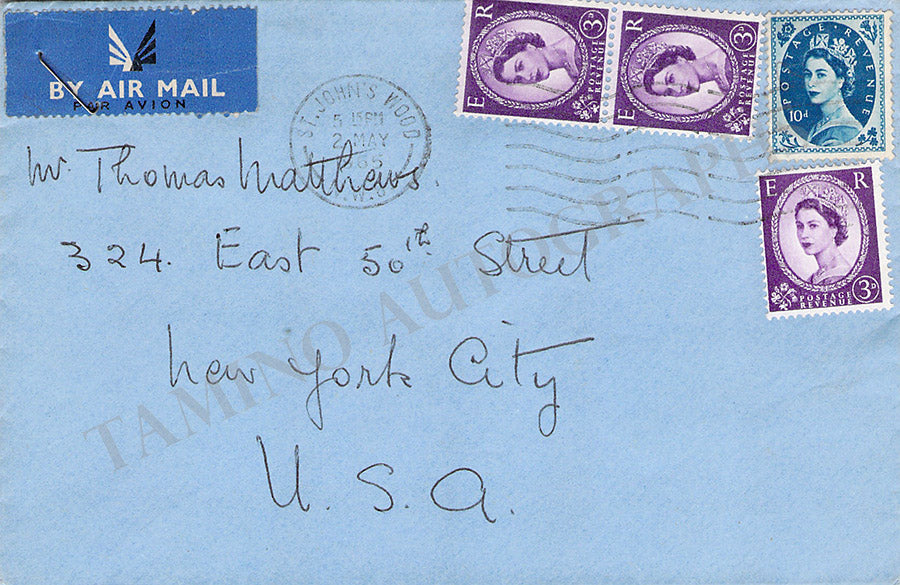 BY AIR MAIL
PAR AVION
ST. JOHN'S WOOD
5 15PM
2 MAY
E R
3D
POSTAGE REVENUE
E R
3D
POSTAGE REVENUE
POSTAGE REVENUE
10d
E R
3D
POSTAGE
REVENUE
Mr. Thomas Matthews.
324. East 50th Street
New York City
U.S.A.
TAMINO AUTOGRAPHS